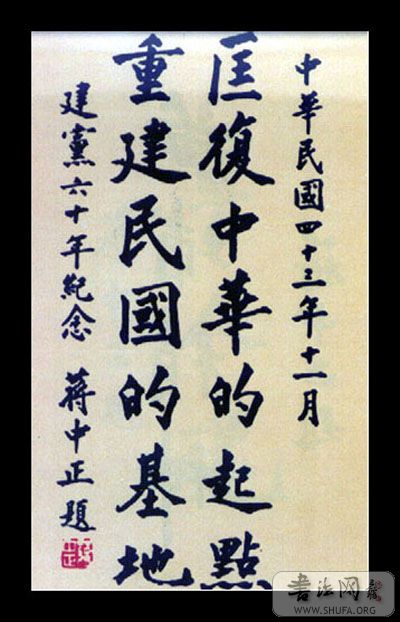 中華民國四十三年十一月
匡復中華的起點
重建民國的基地
建黨六十年紀念 蔣中正題
书法网
WWW.SHUFA.ORG